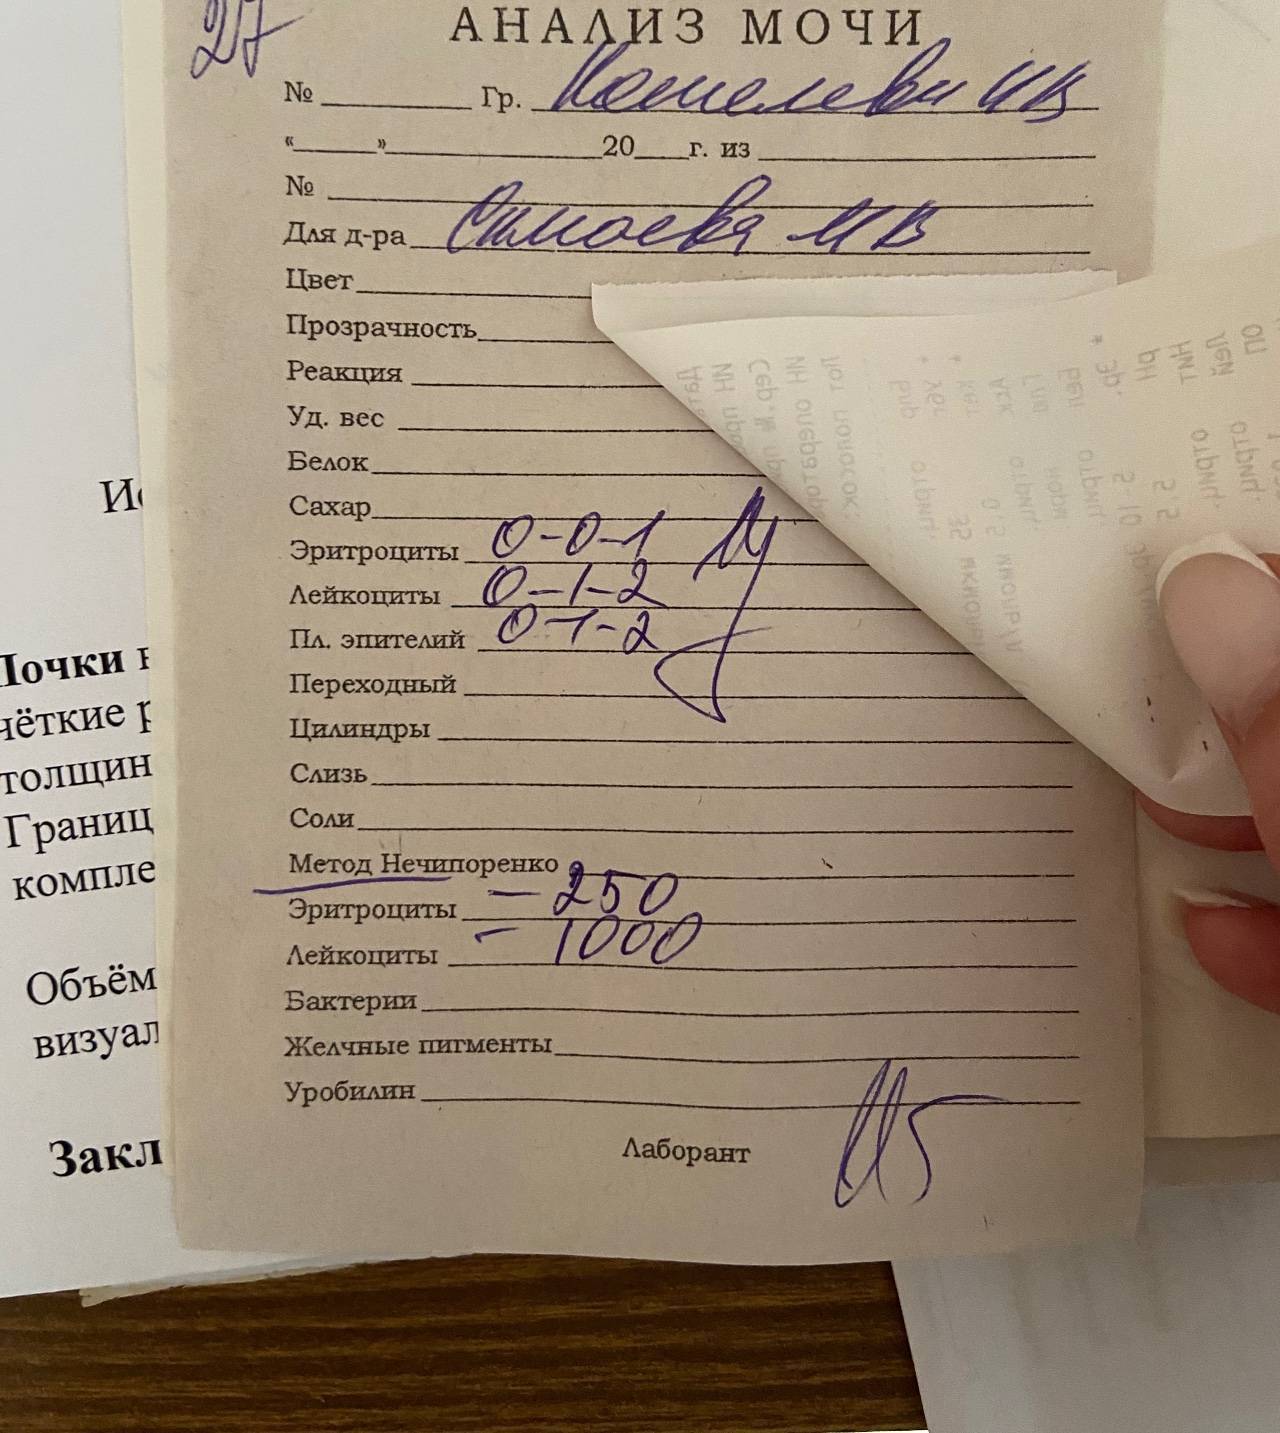 27
АНАЛИЗ МОЧИ
№ Гр. Кошелева И В
« » 20 г. из
№
Для д-ра Симоева М В
Цвет
Прозрачность
Реакция
Уд. вес
Белок
Сахар
Эритроциты 0-0-1
Лейкоциты 0-1-2
Пл. эпителий 0-1-2
Переходный
Цилиндры
Слизь
Соли
Метод Нечипоренко
Эритроциты - 250
Лейкоциты - 1000
Бактерии
Желчные пигменты
Уробилин
Лаборант
Почки
чёткие
толщин
Границ
компле
Объём
визуал
Закл